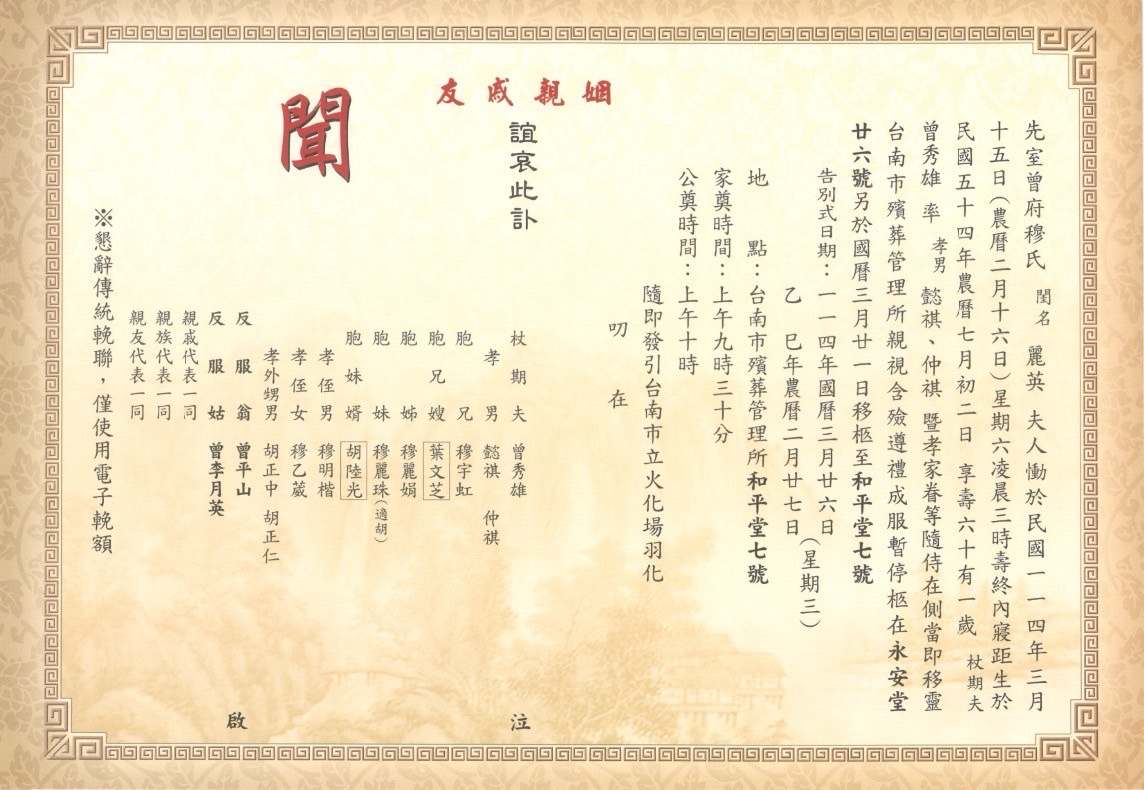 先室曾府穆氏 閨名 麗英 夫人慟於民國一一四年三月
十五日(農曆二月十六日)星期六凌晨三時壽終內寢距生於
民國五十四年農曆七月初二日 享壽六十有一歲 杖期夫
曾秀雄 率 孝男 懿祺、仲祺 暨孝家眷等隨侍在側當即移靈
台南市殯葬管理所親視含殮遵禮成服暫停柩在永安堂
廿六號另於國曆三月廿一日移柩至和平堂七號
告別式日期：一一四年國曆三月廿六日
乙 巳年農曆二月廿七日
(星期三)
地 點：台南市殯葬管理所和平堂七號
家奠時間：上午九時三十分
公奠時間：上午十時
隨即發引台南市立火化場羽化
叨 在
姻親戚友
誼哀此訃
聞
杖期夫 曾秀雄 泣
孝男 懿祺 仲祺
胞兄 穆宇虹
胞兄嫂 葉文芝
胞姊 穆麗娟
胞妹 穆麗珠(適胡)
胞妹婿 胡陸光
孝侄男 穆明楷
孝侄女 穆乙葳
孝外甥男 胡正中 胡正仁
反服翁 曾平山 啟
反服姑 曾李月英
親戚代表一同
親族代表一同
親友代表一同
※懇辭傳統輓聯，僅使用電子輓額